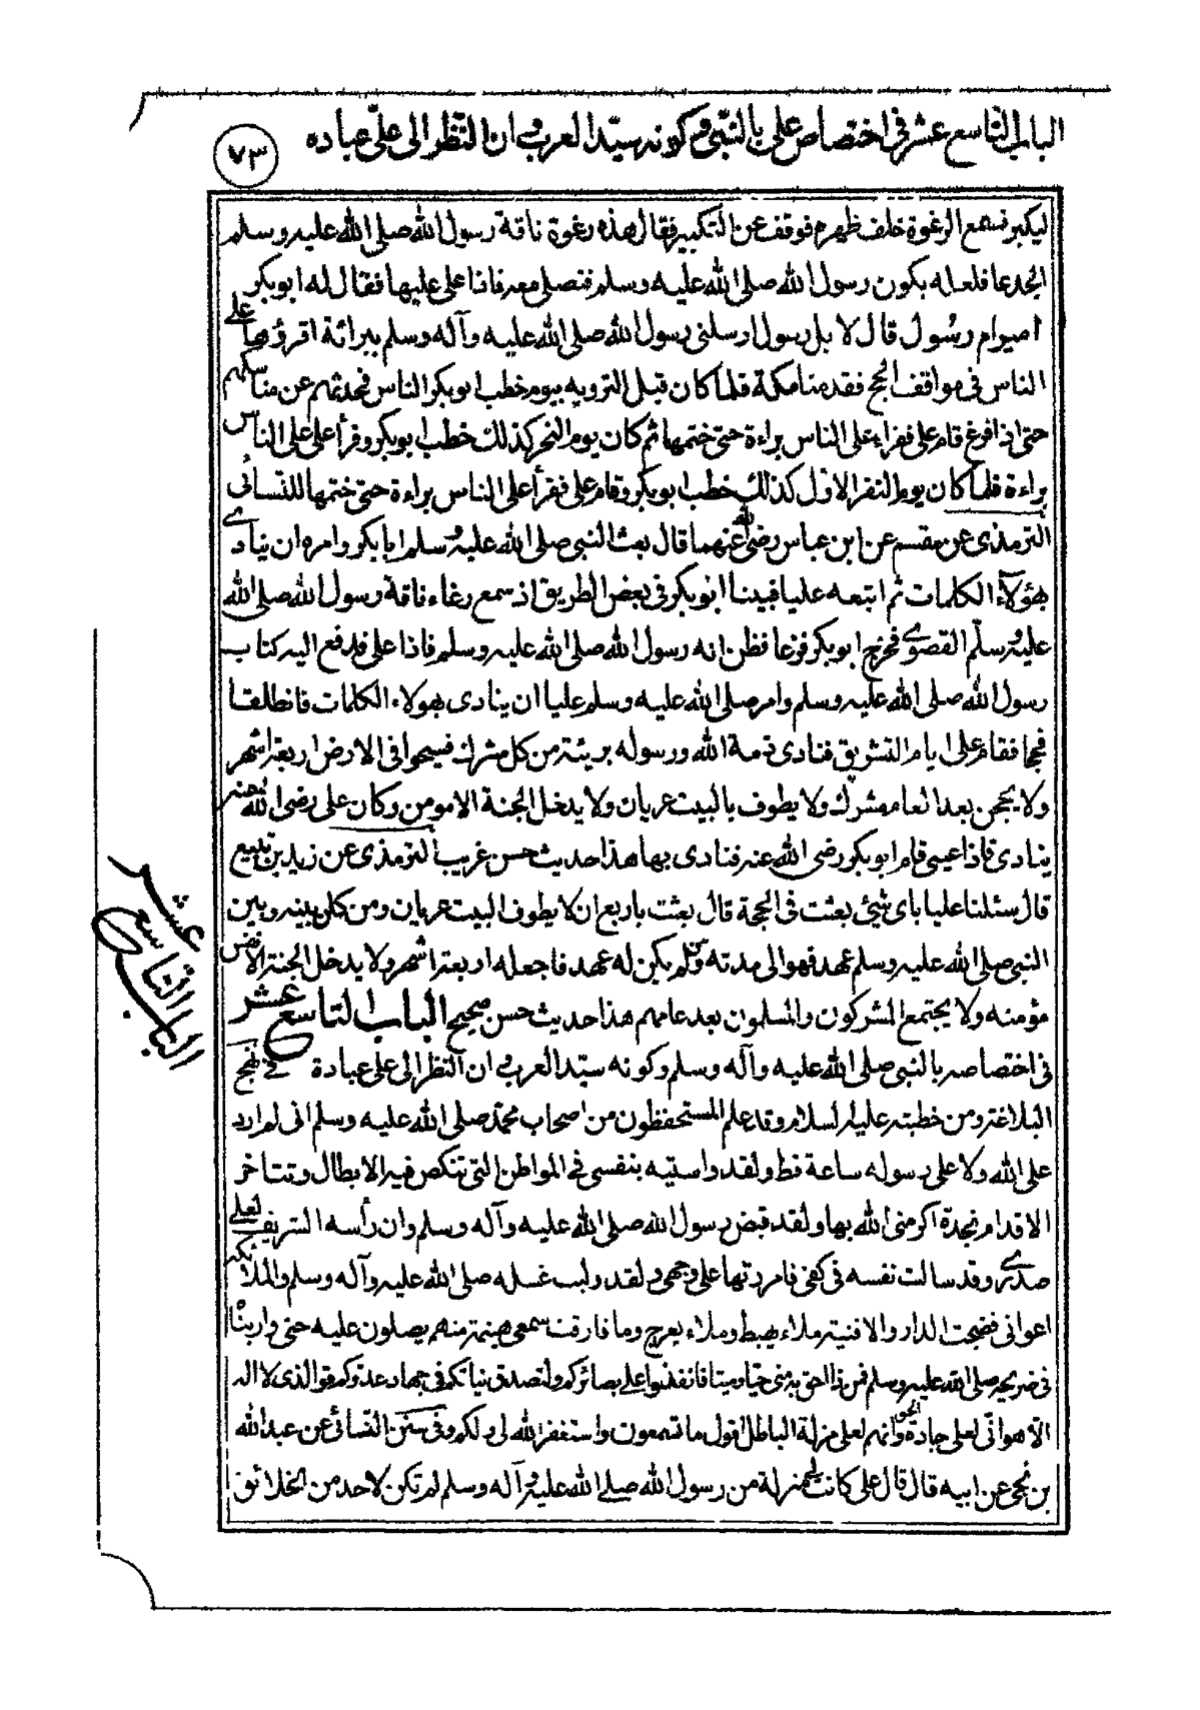 الباب التاسع عشر في اختصاص على بالنبي وكونه سيد العرب وان النظر الى على عبادة
٧٣
ليكبر فسمع الرغوة خلف ظهره فوقف عن التكبير فقال هذه رغوة ناقة رسول الله صلى الله عليه وسلم
الجدعا فلعله يكون رسول الله صلى الله عليه وسلم فنصلى معه فاذا على عليها فقال له ابو بكر
امير ام رسول قال لا بل رسول ارسلنى رسول الله صلى الله عليه وآله وسلم ببرائة اقرؤها على
الناس فى مواقف الحج فقدمنا مكة فلما كان قبل الترويه بيوم خطب ابو بكر الناس فحدثهم عن مناسكهم
حتى اذا فرغ قام على فقراء على الناس براءة حتى ختمها ثم كان يوم النحر كذلك خطب ابو بكر وقرأ على على الناس
براءة فلما كان يوم النفر الاول كذلك خطب ابو بكر وقام على فقرأ على الناس براءة حتى ختمها للنسائى
الترمذى عن مقسم عن ابن عباس رضى الله عنهما قال بعث النبى صلى الله عليه وسلم ابا بكر وامره ان ينادى
بهؤلاء الكلمات ثم اتبعه عليا فبينا ابو بكر فى بعض الطريق اذ سمع رغاء ناقة رسول الله صلى الله
عليه وسلم القصوى فخرج ابو بكر فزعا فظن انه رسول الله صلى الله عليه وسلم فاذا على فدفع اليه كتاب
رسول الله صلى الله عليه وسلم وامر صلى الله عليه وسلم عليا ان ينادى بهولاء الكلمات فانطلقا
فحجا فقام على ايام التشريق فنادى ذمة الله ورسوله بريئة من كل مشرك فسيحوا فى الارض اربعة اشهر
ولا يحجن بعد العام مشرك ولا يطوف بالبيت عريان ولا يدخل الجنة الا مومن وكان على رضى الله عنه
ينادى فاذا عيى قام ابو بكر رضى الله عنه فنادى بها هذا حديث حسن غريب الترمذى عن زيد بن يثيع
قال سئلنا عليا باى شئ بعثت فى الحجة قال بعثت باربع ان لا يطوف البيت عريان ومن كان بينه وبين
النبى صلى الله عليه وسلم عهد فهو الى مدته ومن لم يكن له عهد فاجعله اربعة اشهر ولا يدخل الجنة الا نفس
مؤمنه ولا يجتمع المشركون والمسلمون بعد عامهم هذا حديث حسن صحيح الباب التاسع عشر
فى اختصاصه بالنبى صلى الله عليه وآله وسلم وكونه سيد العرب وان النظر الى على عبادة فى نهج
البلاغة ومن خطبته عليه السلام وقد علم المستحفظون من اصحاب محمد صلى الله عليه وسلم انى لم ارد
على الله ولا على رسوله ساعة قط ولقد واسيته بنفسى فى المواطن التى تنكص فيه الابطال وتتاخر
الاقدام نجدة اكرمنى الله بها ولقد قبض رسول الله صلى الله عليه وآله وسلم وان رأسه الشريف لعلى
صدرى وقد سالت نفسه فى كفى فامررتها على وجهى ولقد وليت غسله صلى الله عليه وآله وسلم والملائكة
اعوانى فضجت الدار والافنية ملاء يهبط وملاء يعرج وما فارقت سمعى هينمة منهم يصلون عليه حتى واريناه
فى ضريحه صلى الله عليه وسلم فمن ذا احق به منى حيا وميتا فانفذوا على بصائركم ولتصدق نياتكم فى جهاد عدوكم فو الذى لا اله
الا هو انى لعلى جادة الحق وانهم لعلى مزلة الباطل اقول ما تسمعون واستغفر الله لى ولكم وفى سنن النسائى عن عبد الله
بن نجى عن ابيه قال قال على كانت لى منزلة من رسول الله صلى الله عليه وآله وسلم لم تكن لاحد من الخلائق
الباب التاسع عشر